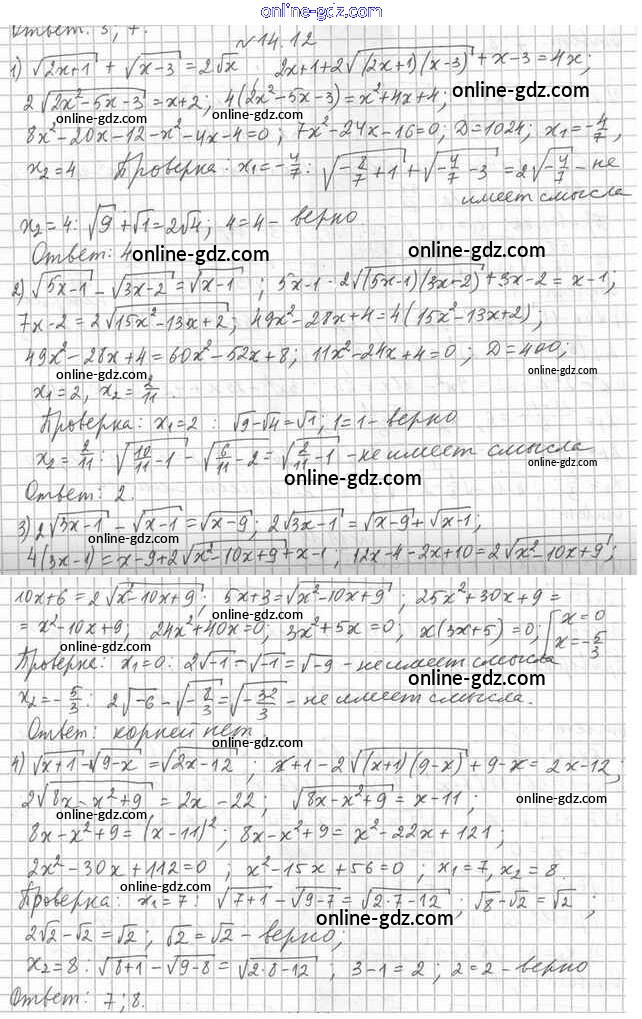 online-gdz.com
Ответ: 3; 7.
№14.12
1) √(2x+1) + √(x-3) = 2√x 2x+1+2√((2x+1)(x-3)) + x-3 = 4x;
2√(2x²-5x-3) = x+2; 4(2x²-5x-3) = x²+4x+4;
online-gdz.com online-gdz.com
8x²-20x-12-x²-4x-4=0; 7x²-24x-16=0; D=1024; x₁=-4/7,
x₂=4 Проверка: x₁=-4/7: √(-8/7+1) + √(-4/7-3) = 2√(-4/7) - не
имеет смысла
online-gdz.com
x₂=4: √9+√1=2√4; 4=4 - верно
Ответ: 4
online-gdz.com online-gdz.com
2) √(5x-1) - √(3x-2) = √(x-1); 5x-1-2√((5x-1)(3x-2)) + 3x-2 = x-1;
online-gdz.com
7x-2=2√(15x²-13x+2); 49x²-28x+4=4(15x²-13x+2);
49x²-28x+4=60x²-52x+8; 11x²-24x+4=0; D=400;
online-gdz.com online-gdz.com
x₁=2, x₂=2/11.
Проверка: x₁=2: √9-√4=√1; 1=1 - верно
online-gdz.com
x₂=2/11: √(10/11-1) - √(6/11-2) = √(2/11-1) - не имеет смысла
online-gdz.com
Ответ: 2.
3) 2√(3x-1) - √(x-1) = √(x-9); 2√(3x-1) = √(x-9) + √(x-1);
online-gdz.com
4(3x-1) = x-9+2√(x²-10x+9)+x-1; 12x-4-2x+10=2√(x²-10x+9);
10x+6=2√(x²-10x+9); 5x+3=√(x²-10x+9); 25x²+30x+9=
online-gdz.com
=x²-10x+9; 24x²+40x=0; 3x²+5x=0; x(3x+5)=0; [x=0
x=-5/3
online-gdz.com
Проверка: x₁=0: 2√-1 - √-1 = √-9 - не имеет смысла
online-gdz.com
x₂=-5/3: 2√-6 - √(-8/3) = √(-32/3) - не имеет смысла.
Ответ: корней нет.
online-gdz.com
4) √(x+1) - √(9-x) = √(2x-12); x+1-2√((x+1)(9-x)) + 9-x = 2x-12;
2√(8x-x²+9) = 2x-22; √(8x-x²+9) = x-11;
online-gdz.com online-gdz.com
8x-x²+9=(x-11)²; 8x-x²+9=x²-22x+121;
2x²-30x+112=0; x²-15x+56=0; x₁=7, x₂=8.
online-gdz.com
Проверка: x₁=7: √(7+1) - √(9-7) = √(2·7-12); √8-√2=√2;
online-gdz.com
2√2-√2=√2; √2=√2 - верно;
x₂=8: √(8+1) - √(9-8) = √(2·8-12); 3-1=2; 2=2 - верно
online-gdz.com
Ответ: 7; 8.
online-gdz.com